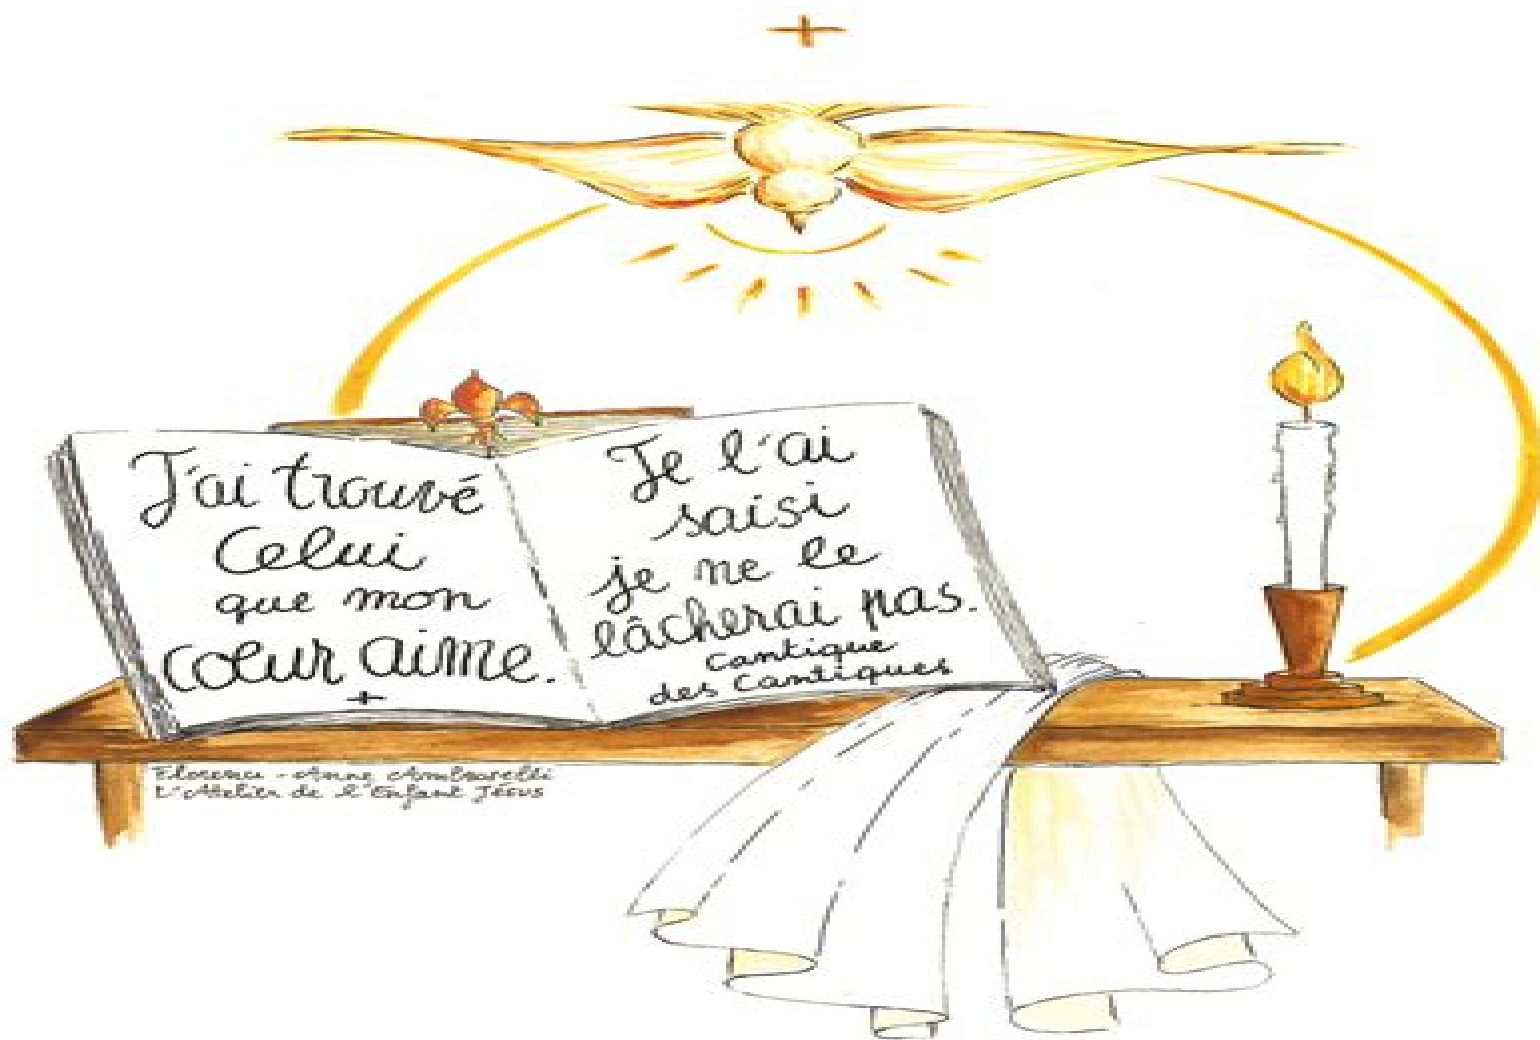 J'ai trouvé
Celui
que mon
cœur aime.
Je l'ai
saisi
je ne le
lâcherai pas.
Cantique
des Cantiques
Florence-Anne Ambroselli
L'Atelier de l'Enfant Jésus